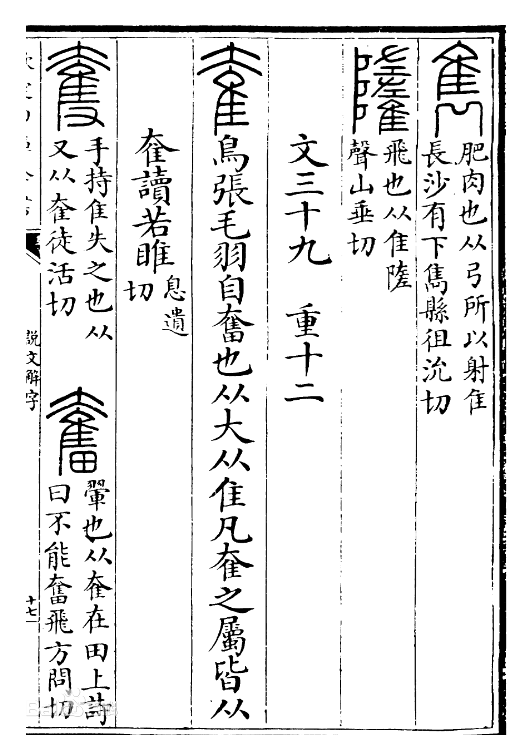 雋
肥肉也从弓所以射隹
長沙有下雋縣徂沇切
飛也从隹陸
聲山垂切
文三十九 重十二
奞
鳥張毛羽自奮也从大从隹凡奞之屬皆从
奞讀若睢
息遺
切
奪
手持隹失之也从
又从奞徒活切
奮
翬也从奞在田上詩
曰不能奮飛方問切
說文解字
十七